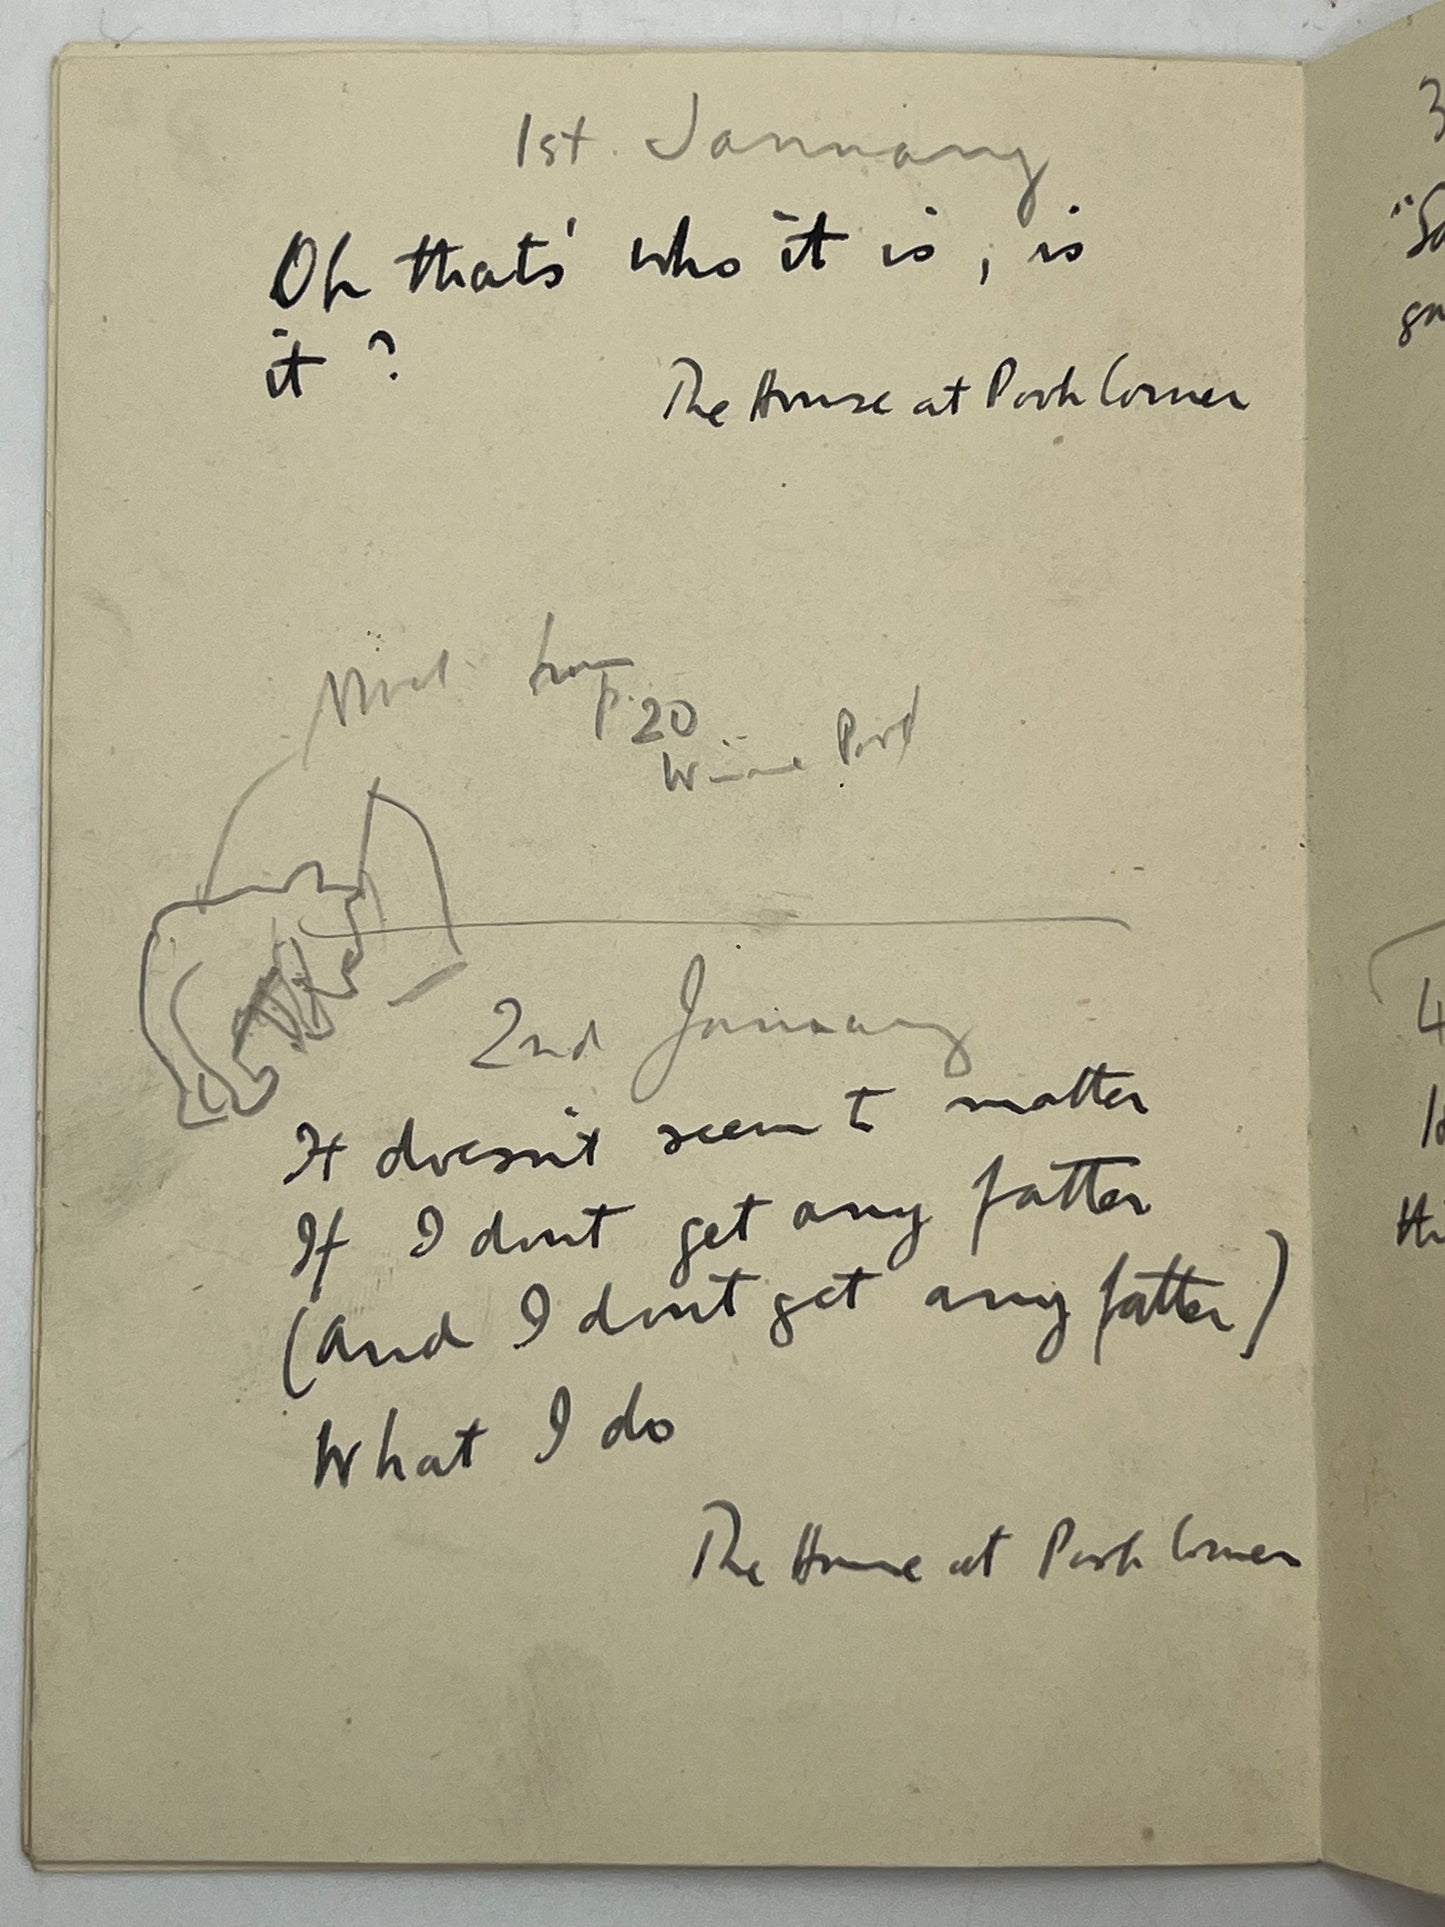 1st. January
Oh that's who it is, is
it ?
The House at Pooh Corner
from
P. 20
Winnie Pooh
2nd January
It doesn't seem to matter
If I don't get any fatter
(And I don't get any fatter)
What I do
The House at Pooh Corner
3
"So
4